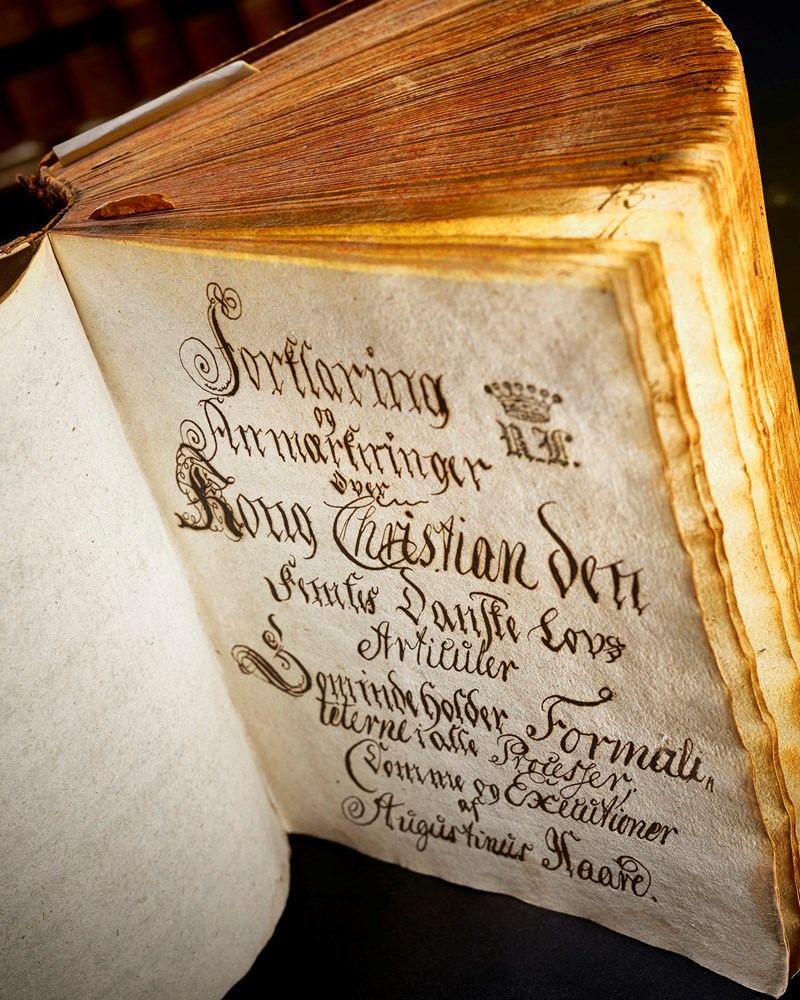 Forklaring
og
Anmærkninger
over
Kong Christian den
Femtes Danske Lovs
Articuler
Som indeholder Formali„
teterne i alle Processer,
Domme og Executioner
af
Augustinus Naare.